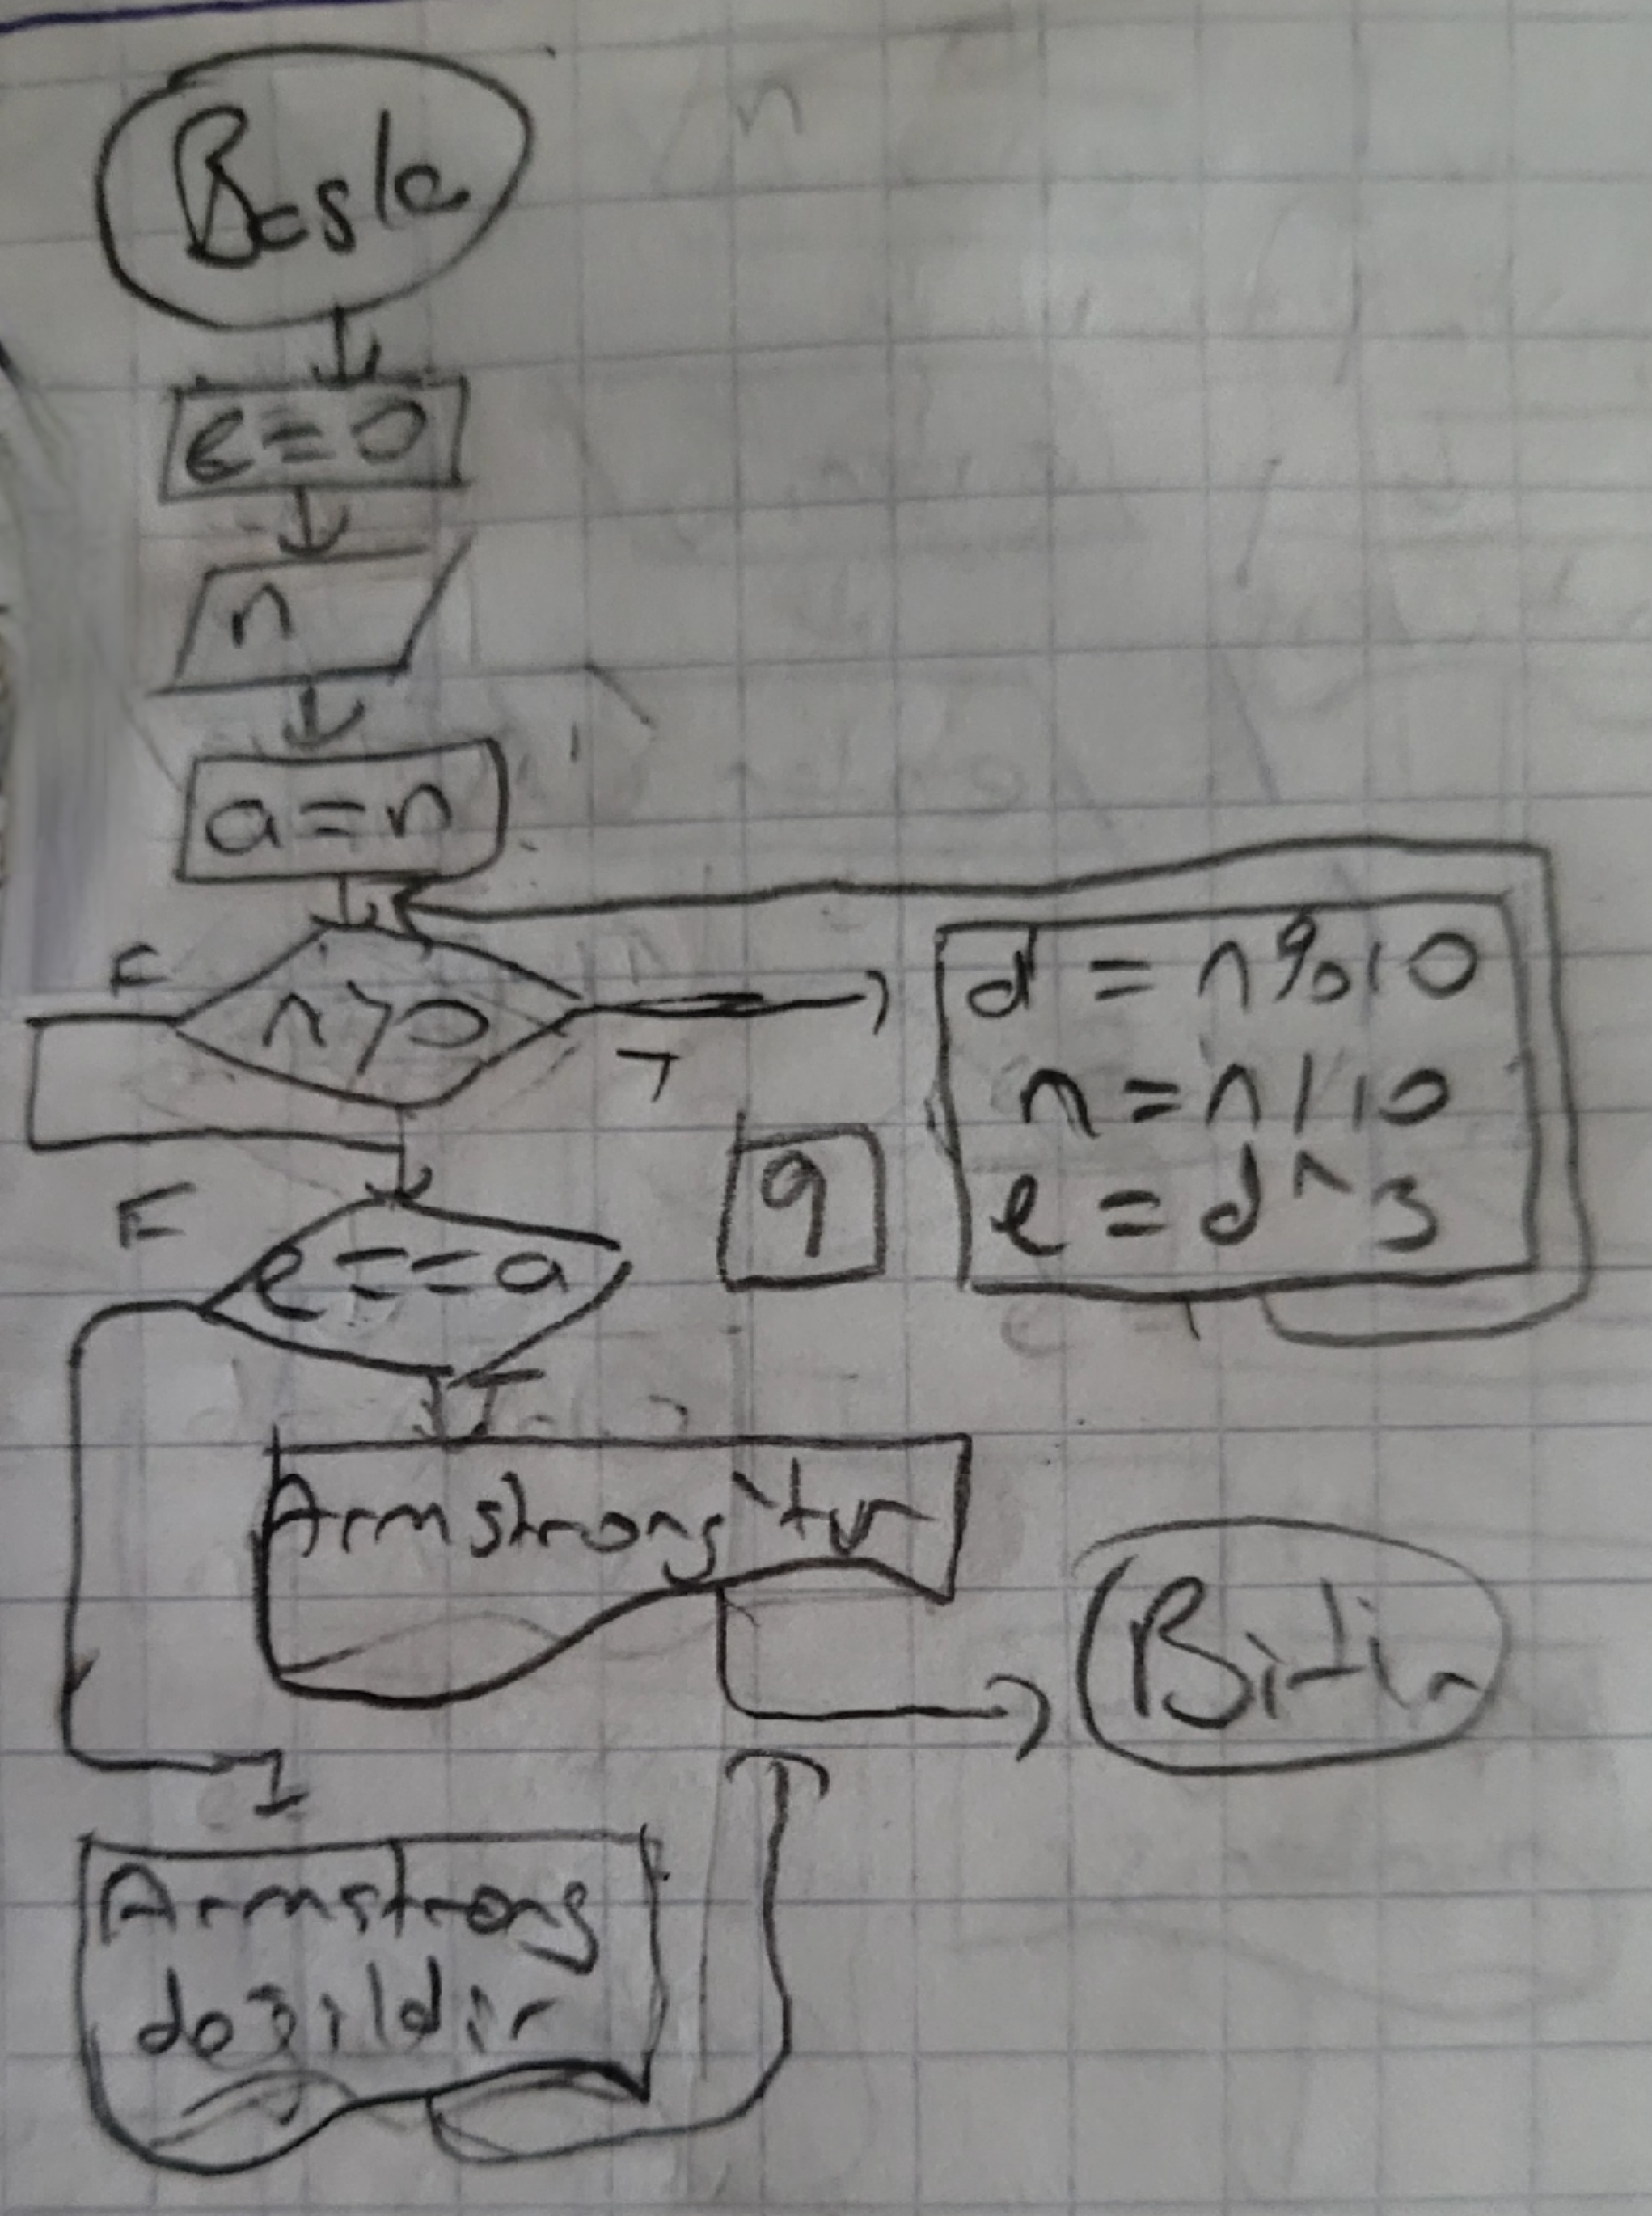 n
Başla
e=0
n
a=n
F
n>0
T
d = n%10
n = n/10
e = d^3
9
F
e==a
T
Armstrong'tur
Bitir
Armstrong
değildir